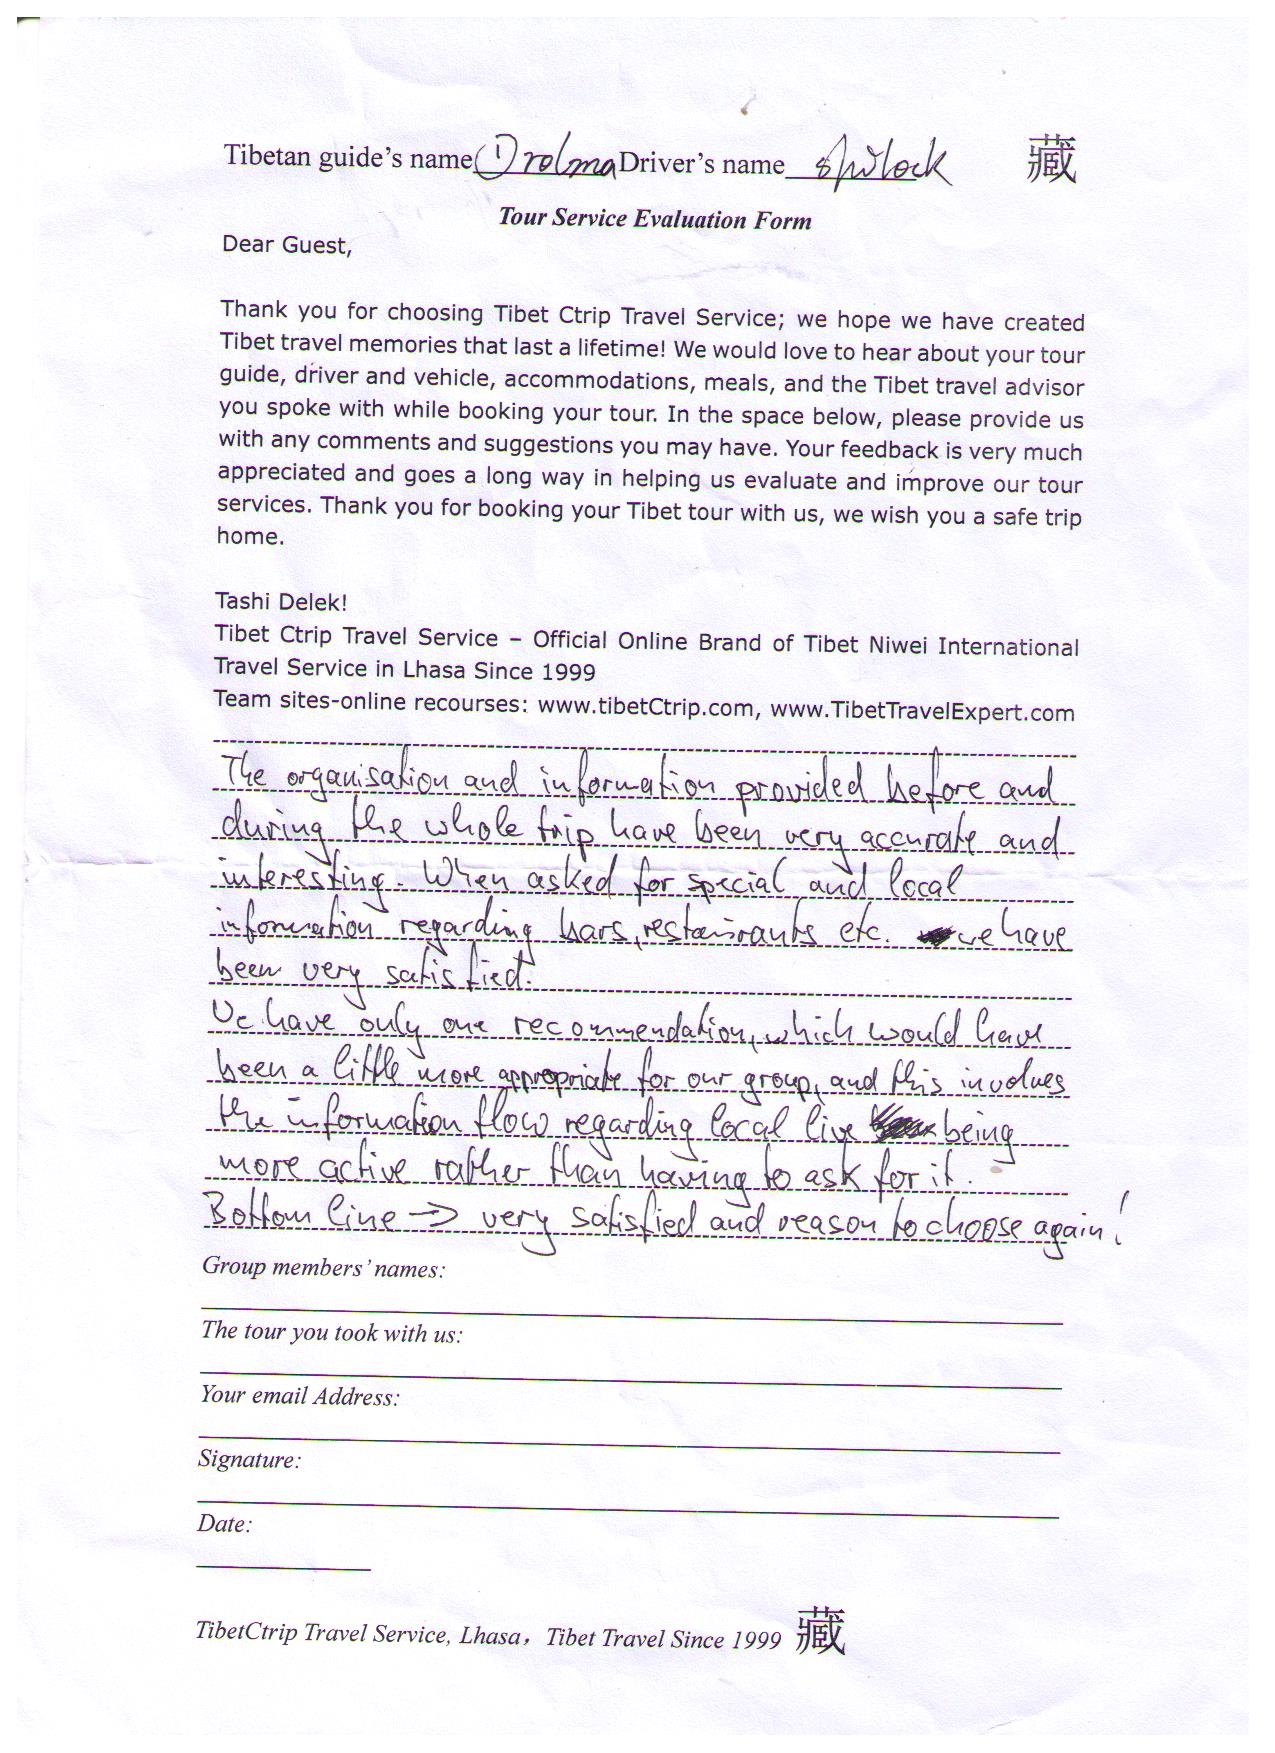 Tibetan guide's name Drolma Driver's name 藏
Tour Service Evaluation Form
Dear Guest,
Thank you for choosing Tibet Ctrip Travel Service; we hope we have created
Tibet travel memories that last a lifetime! We would love to hear about your tour
guide, driver and vehicle, accommodations, meals, and the Tibet travel advisor
you spoke with while booking your tour. In the space below, please provide us
with any comments and suggestions you may have. Your feedback is very much
appreciated and goes a long way in helping us evaluate and improve our tour
services. Thank you for booking your Tibet tour with us, we wish you a safe trip
home.
Tashi Delek!
Tibet Ctrip Travel Service – Official Online Brand of Tibet Niwei International
Travel Service in Lhasa Since 1999
Team sites-online recourses: www.tibetCtrip.com, www.TibetTravelExpert.com
The organisation and information provided before and
during the whole trip have been very accurate and
interesting. When asked for special and local
information regarding bars, restaurants etc. we have
been very satisfied.
We have only one recommendation, which would have
been a little more appropriate for our group, and this involves
the information flow regarding local live being
more active rather than having to ask for it.
Bottom line → very satisfied and reason to choose again!
Group members' names:
The tour you took with us:
Your email Address:
Signature:
Date:
TibetCtrip Travel Service, Lhasa，Tibet Travel Since 1999 藏